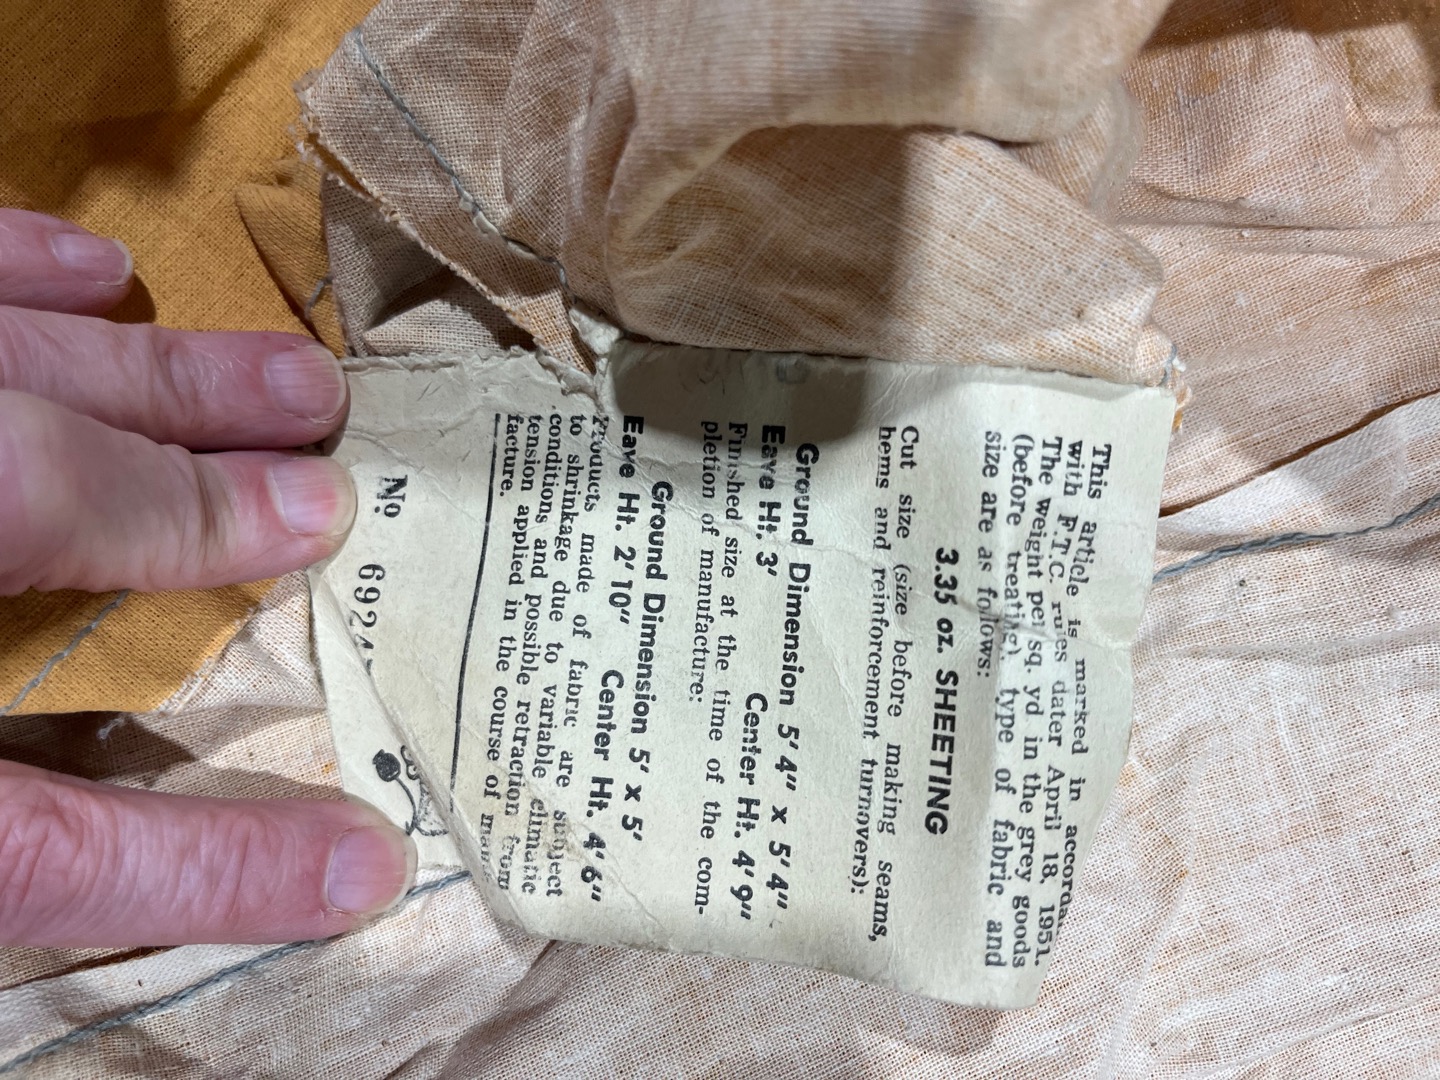 This article is marked in
with F.T.C. rules dater April 18, 1951.
The weight per sq. yd in the grey goods
(before treating), type of fabric and
size are as follows:
3.35 oz. SHEETING
Cut size (size before making seams,
hems and reinforcement turnovers):
Ground Dimension 5' 4" x 5' 4"
Eave Ht. 3' Center Ht. 4' 9"
Finished size at the time of the com-
pletion of manufacture:
Ground Dimension 5' x 5'
Eave Ht. 2' 10" Center Ht. 4' 6"
Products made of fabric are subject
to shrinkage due to variable climatic
conditions and possible retraction from
tension applied in the course of manu-
facture.
No. 6924